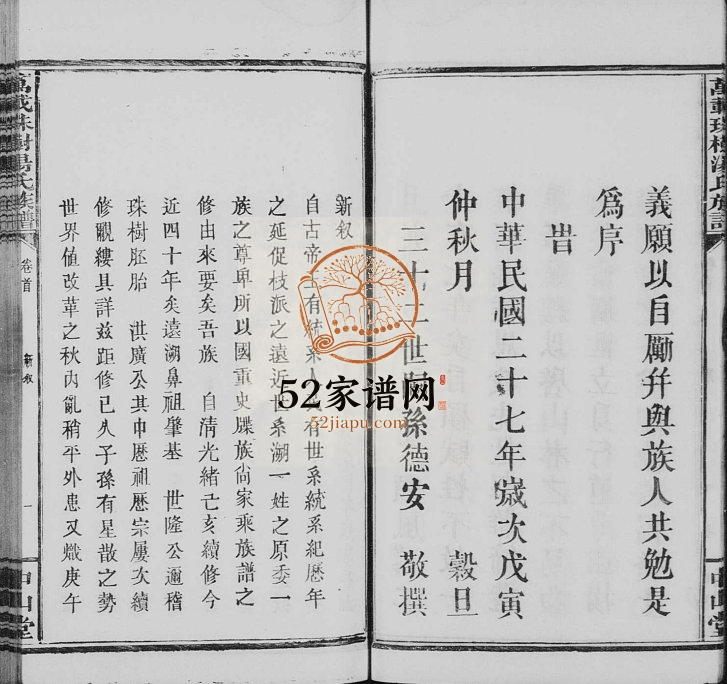 義願以自勵幷與族人共勉是
爲序
旹
中華民國二十七年歲次戊寅
仲秋月 穀旦
三十二世 孫德安 敬撰
中山堂
萬載珠樹湯氏族譜
卷首
新叙
一
中山堂
新叙
自古帝王有統系人 有世系統系紀歷年
之延促枝派之遠近世系溯一姓之原委一
族之尊卑所以國重史牒族尙家乘族譜之
修由來要矣吾族 自淸光緒己亥續修今
近四十年矣遠溯鼻祖肇基 世隆公邇稽
珠樹胚胎 洪廣公其中歷祖歷宗屢次續
修覼縷具詳兹距修已久子孫有星散之勢
世界值改革之秋内亂稍平外患又熾庚午
52家谱网
52jiapu.com